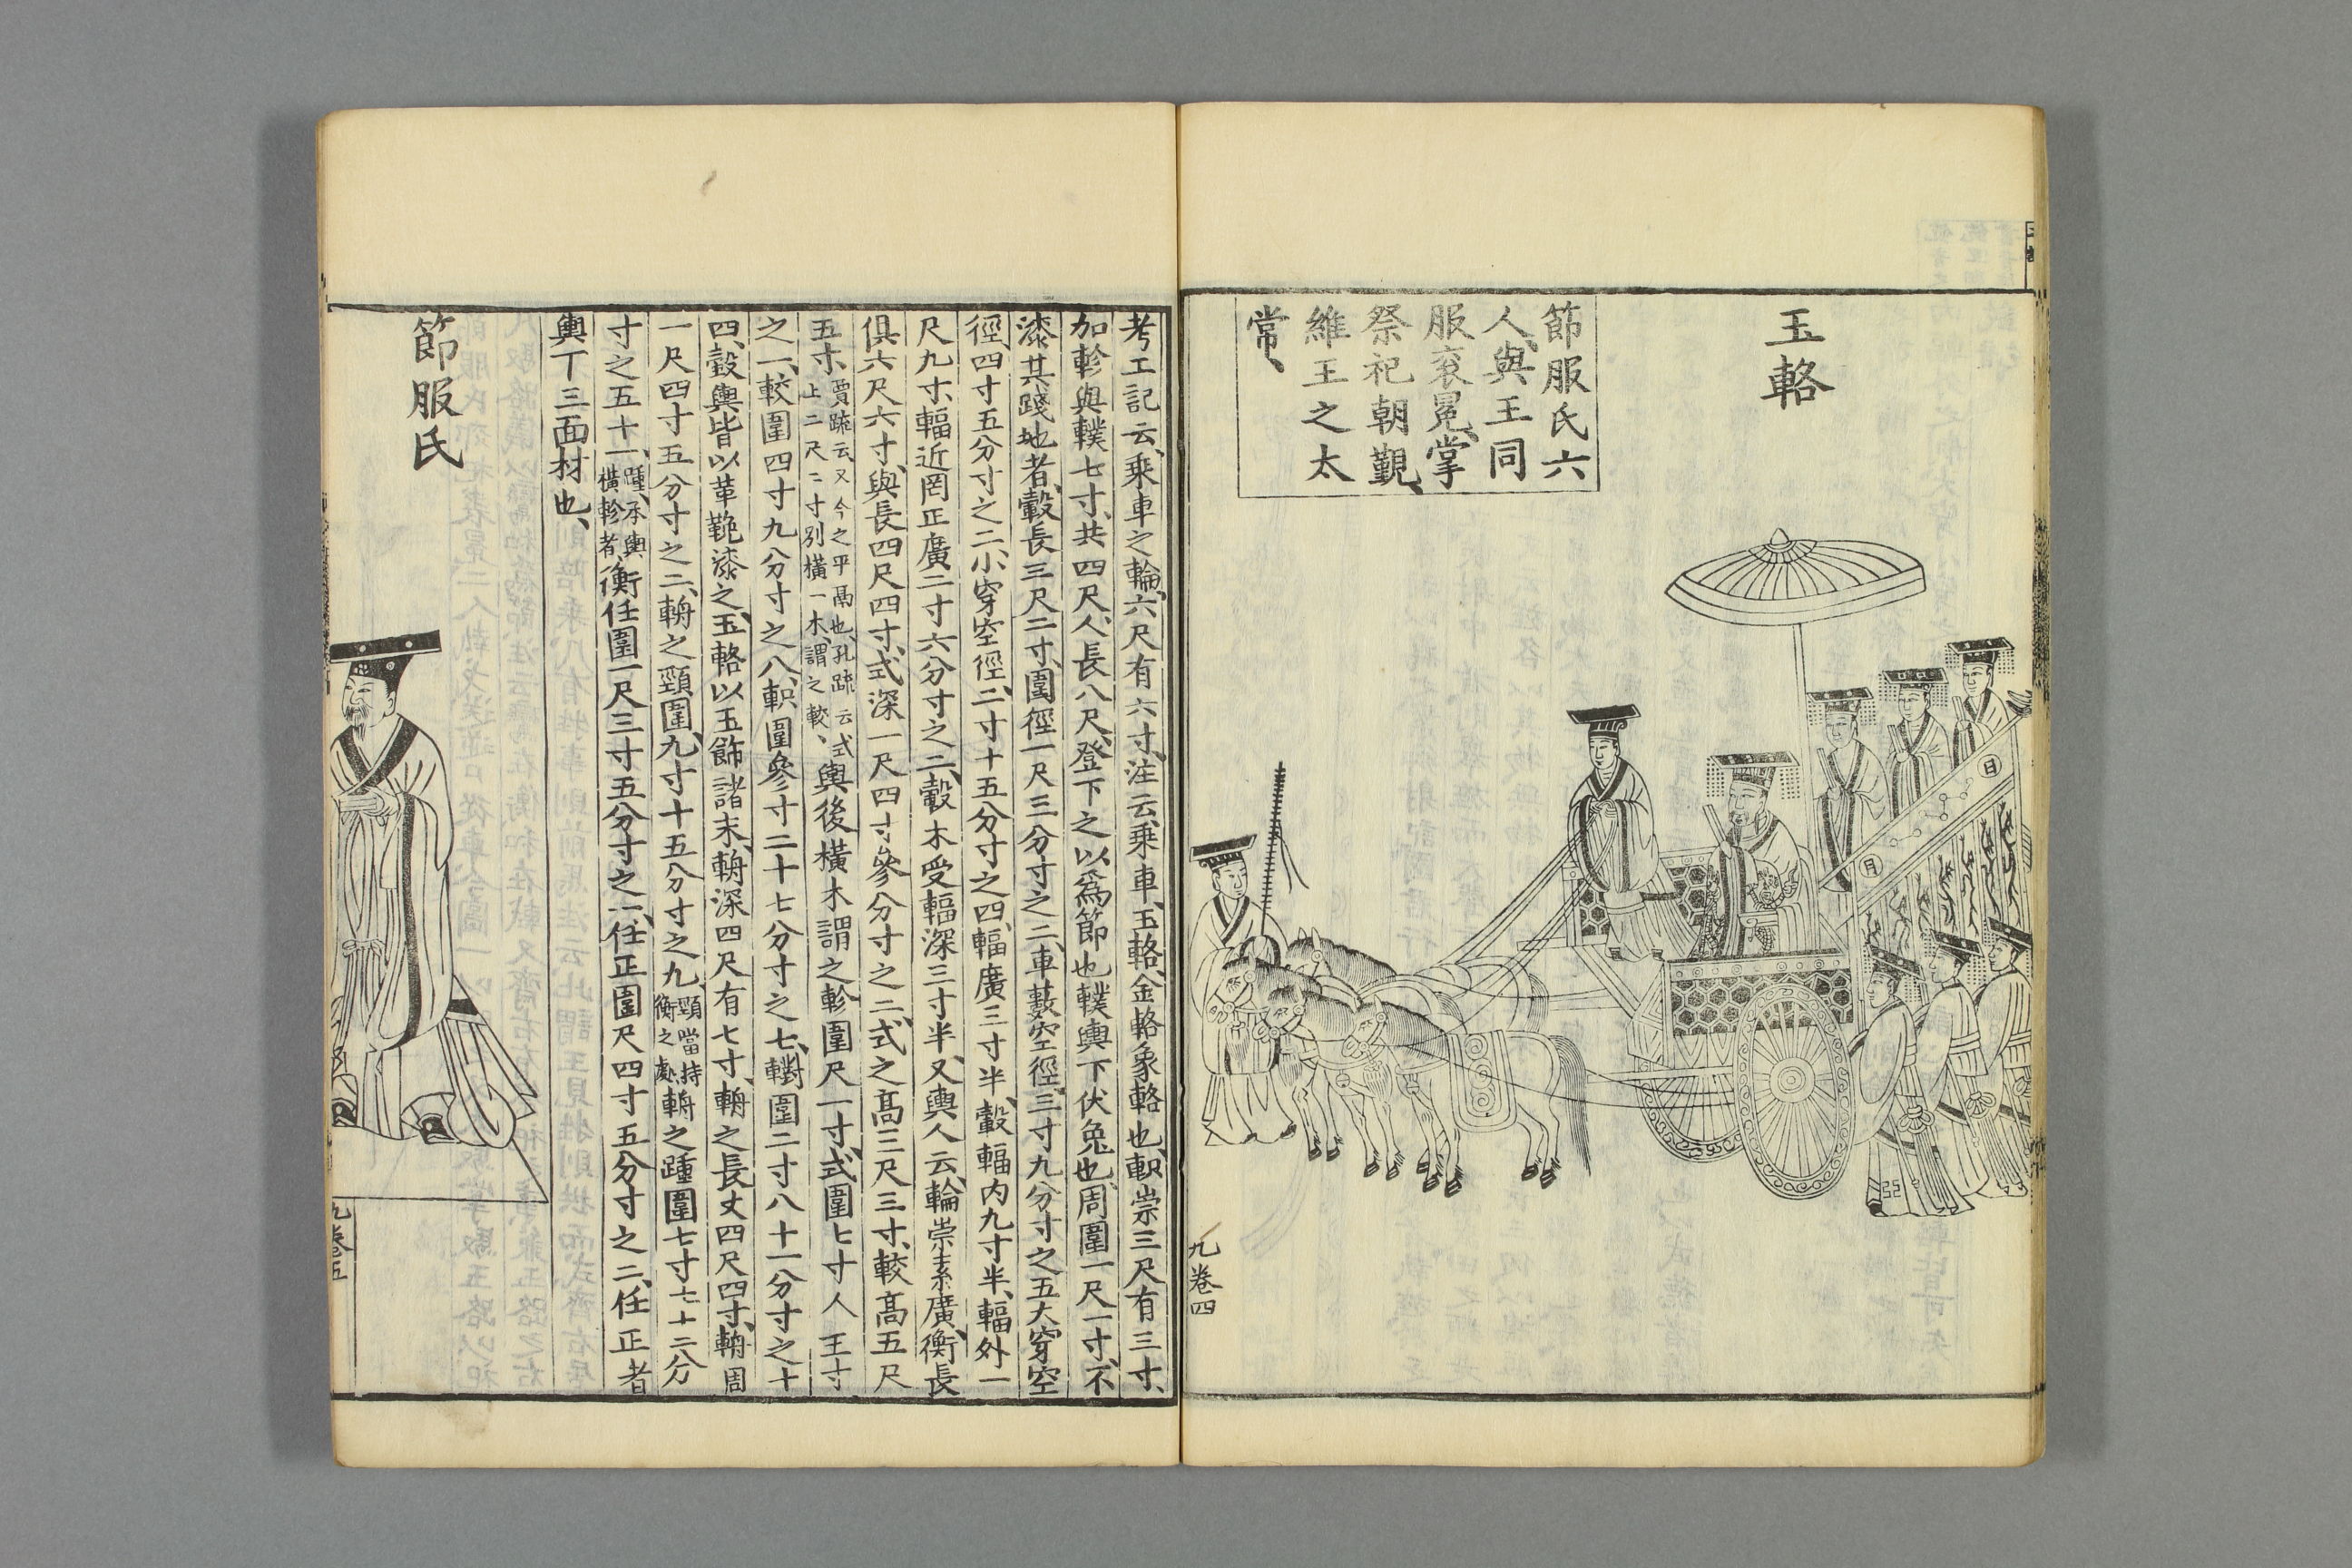 玉輅
節服氏六
人、與王同
服衮冕、掌
祭祀朝覲、
維王之太
常、
日
月
九卷四
考工記云、乘車之輪、六尺有六寸、注云、乘車、玉輅、金輅象輅也、軹崇三尺有三寸、
加軫與轐七寸、共四尺、人長八尺、登下之以爲節也、轐輿下伏兔也、周圍一尺一寸、不
漆其踐地者、轂長三尺二寸、圍徑一尺三分寸之二、車藪空徑、三寸九分寸之五大穿空
徑四寸五分寸之二、小穿空徑、二寸十五分寸之四、輻廣三寸半、轂輻内九寸半、輻外一
尺九寸、輻近罔正廣二寸六分寸之二、轂木受輻深三寸半、又輿人云、輪崇素廣、衡長
俱六尺六寸、與長四尺四寸、式深一尺四寸參分寸之二、式之高三尺三寸、較高五尺
五寸、賈疏云、又今之平鬲也、孔疏云式
上二尺二寸別橫一木、謂之較、
輿後橫木謂之軫圍尺一寸、式圍七寸人王寸
之一、較圍四寸九分寸之八、軹圍參寸二十七分寸之七、轛圍二寸八十一分寸之十
四、轂輿皆以革鞔漆之、玉輅以玉飾諸末、輈深四尺有七寸、輈之長丈四尺四寸、輈周
一尺四寸五分寸之二、輈之頸圍、九寸十五分寸之九、頸當持
衡之處、
輈之踵圍七寸七十二分
寸之五十一、踵、承輿
橫軫者、
衡任圍一尺三寸五分寸之一、任正圍尺四寸五分寸之二、任正者
輿丅三面材也、
節服氏
九卷五